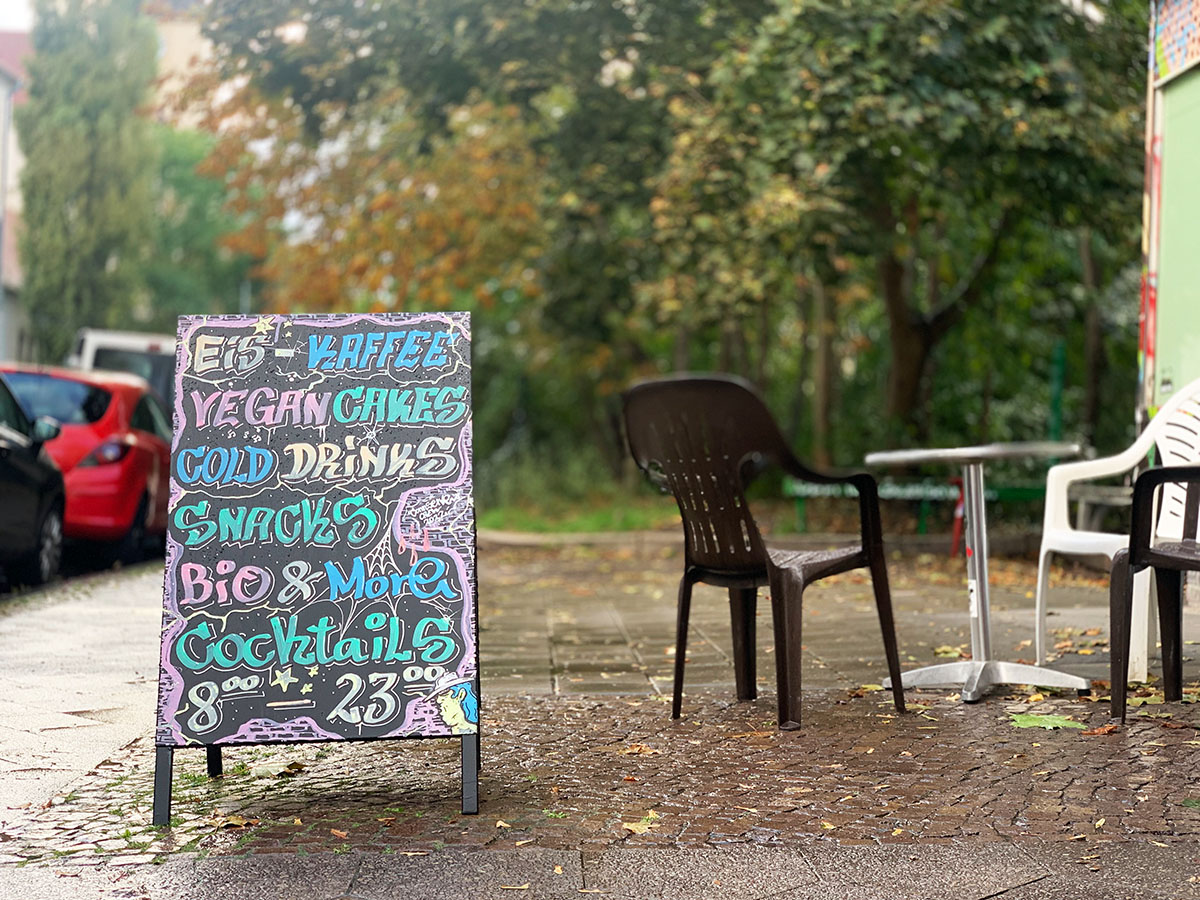 Eis - KAFFEE
VEGAN CAKES
COLD DRINKS
SNACKS
Bio & More
Cocktails
8⁰⁰ — 23⁰⁰